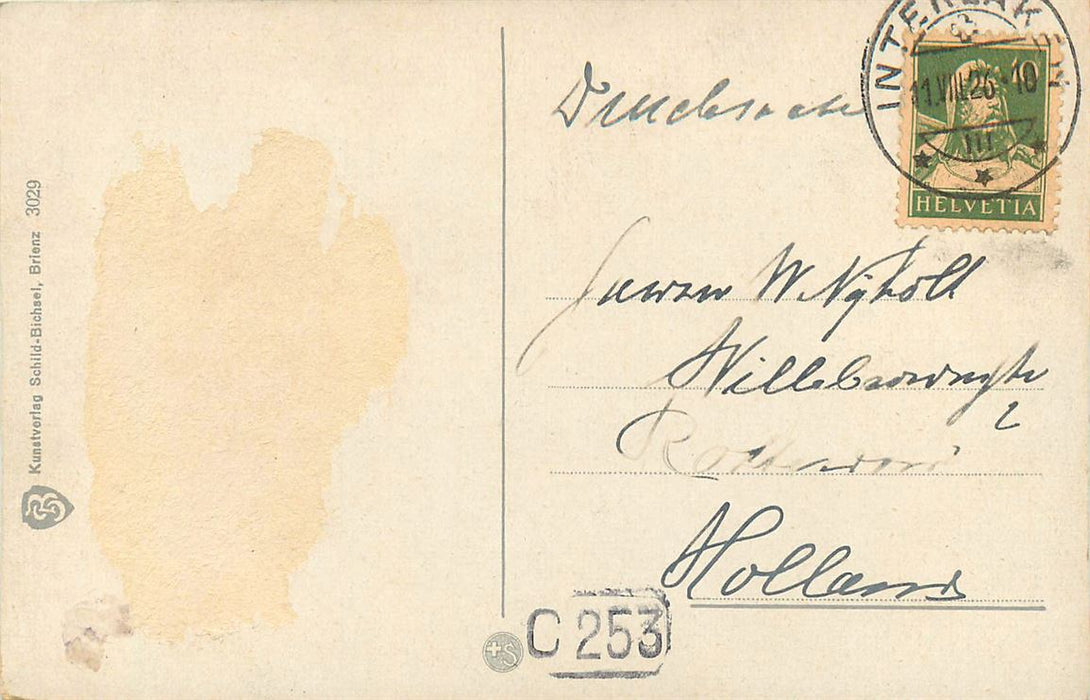 Kunstverlag Schild-Bichsel, Brienz 3029
Drucksache
INTERLAKEN
11.VIII.26.-10
III
10
HELVETIA
W. Nijholt
2
Holland
C 253
+S